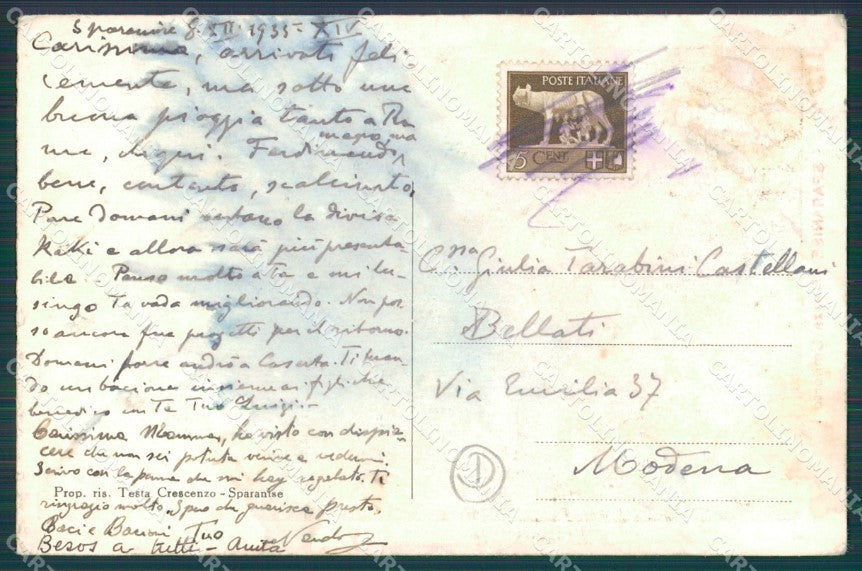 Sparanise 8. XII. 1935 - XIV
Carissima, arrivati feli
cemente, ma sotto una
buona pioggia tanto a Ro
ma, che qui. Ferdinando
magro ma
bene, contento, scalcinato.
Pare Domani avranno la divisa
Kaki e allora sarà più presenta-
bile. Penso molto a te e mi lu-
singo Ta vada migliorando. Non pos
so ancora fare progetti per il ritorno.
Domani forse andrò a Caserta. Ti man
do un bacione insieme ai figli che
benedico con Te Tuo Luigi -
Carissima Mamma, ho visto con dispia
cere che non sei potuta venire a vedermi.
Scrivo con la penna che mi hai regalato. Ti
ringrazio molto. Spero che guarisca presto.
Baci e Bacioni Tuo
Besos a tutti - Anita
Prop. ris. Testa Crescenzo - Sparanise
POSTE ITALIANE
5 CENT
C.ssa Giulia Tarabini Castellani
Bellati
Via Emilia 37
Modena
CARTOLINOMANIA